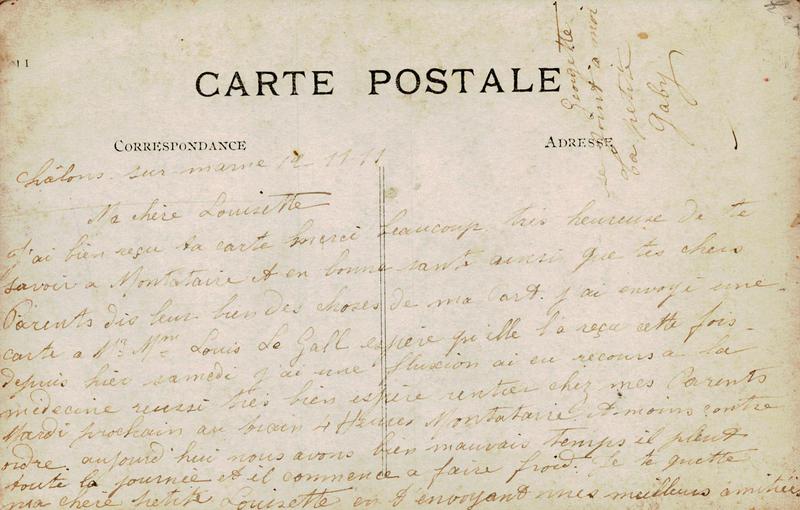 11
CARTE POSTALE
CORRESPONDANCE
ADRESSE
Châlons sur marne 12 11 11
Ma chère Louisette
J'ai bien reçu ta carte merci beaucoup très heureuse de te
savoir a Montataire et en bonne santé ainsi que tes chers
Parents dis leur bien des choses de ma Part. j'ai envoyé une
carte a Mr Mme Louis Le Gall espère qu'ille l'a reçu cette fois
depuis hier samedi j'ai une fluxion ai eu recours a la
médecine reussi très bien espère rentier chez mes Parents
Mardi prochain au train 4 Heures Montataire A moins contre
ordre. aujourd'hui nous avons bien mauvais temps il pleut
toute la journée et il commence a faire froid. Je te quette
ma chère petite Louisette en t'envoyant mes meilleurs amitiés
Georgette
se joint a moi
ta petite
Gaby